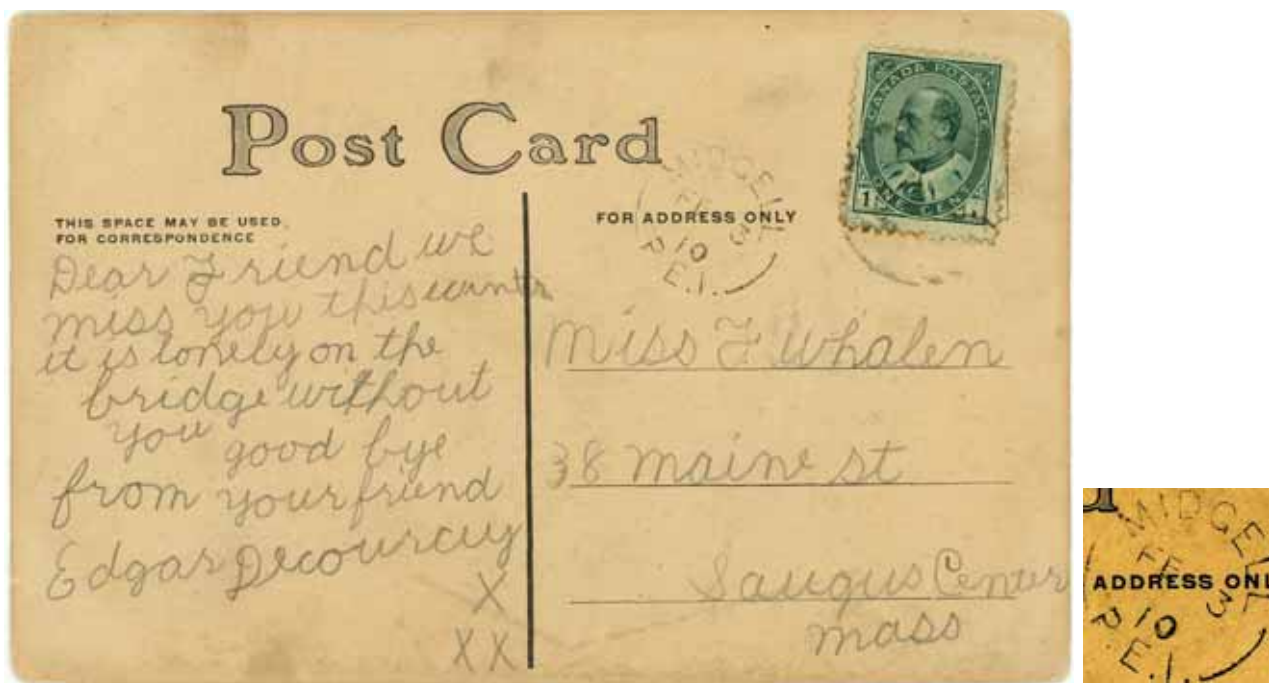 Post Card
THIS SPACE MAY BE USED
FOR CORRESPONDENCE
Dear Friend we
miss you this winter
it is lonely on the
bridge without
you good bye
from your friend
Edgar Decourcey
X
XX
CANADA POSTAGE
1
ONE CENT
MIDGELL
FE 3
10
P.E.I.
FOR ADDRESS ONLY
Miss F Whalen
38 maine st
Saugus Center
mass
MIDGELL
FE 3
10
P.E.I.
ADDRESS ONL